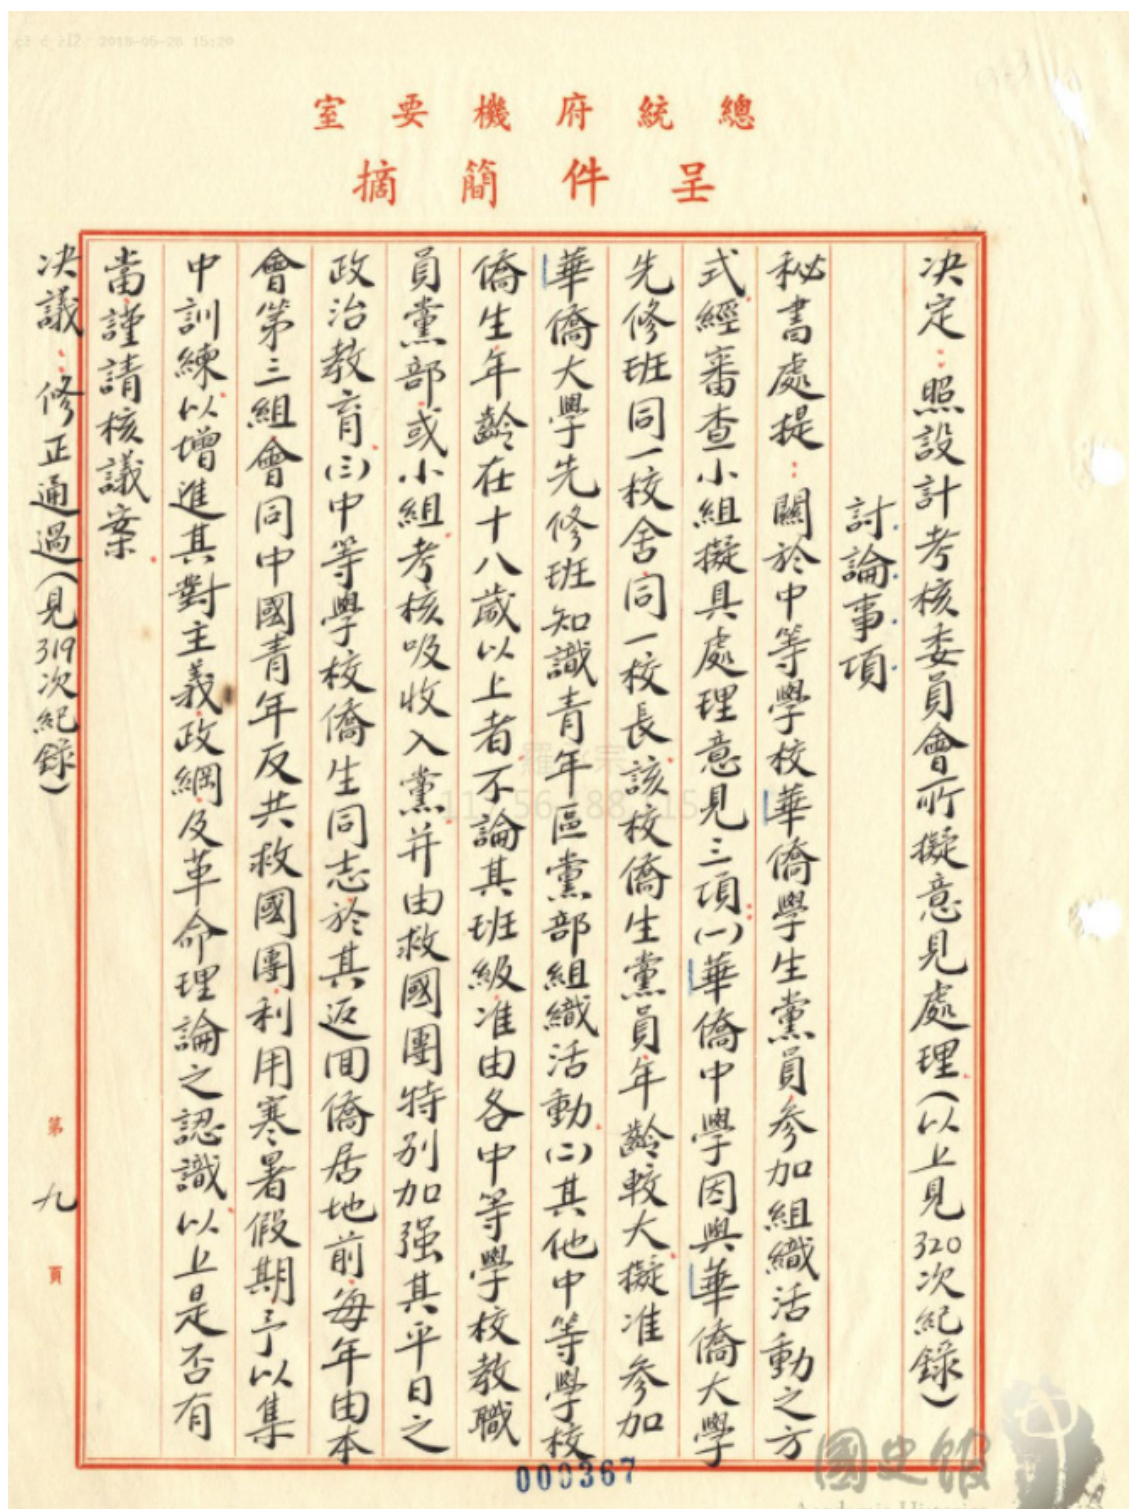 2018-05-26 15:20
總統府機要室
呈件簡摘
決定：照設計考核委員會所擬意見處理（以上見320次紀錄）
討論事項
秘書處提：關於中等學校華僑學生黨員參加組織活動之方
式經審查小組擬具處理意見三項：(一)華僑中學因與華僑大學
先修班同一校舍同一校長該校僑生黨員年齡較大擬准參加
華僑大學先修班知識青年區黨部組織活動(二)其他中等學校
僑生年齡在十八歲以上者不論其班級准由各中等學校教職
員黨部或小組考核吸收入黨并由救國團特別加强其平日之
政治教育(三)中等學校僑生同志於其返回僑居地前每年由本
會第三組會同中國青年反共救國團利用寒暑假期予以集
中訓練以增進其對主義政綱及革命理論之認識以上是否有
當謹請核議案
決議：修正通過（見319次紀錄）
第九頁
000367
國史館